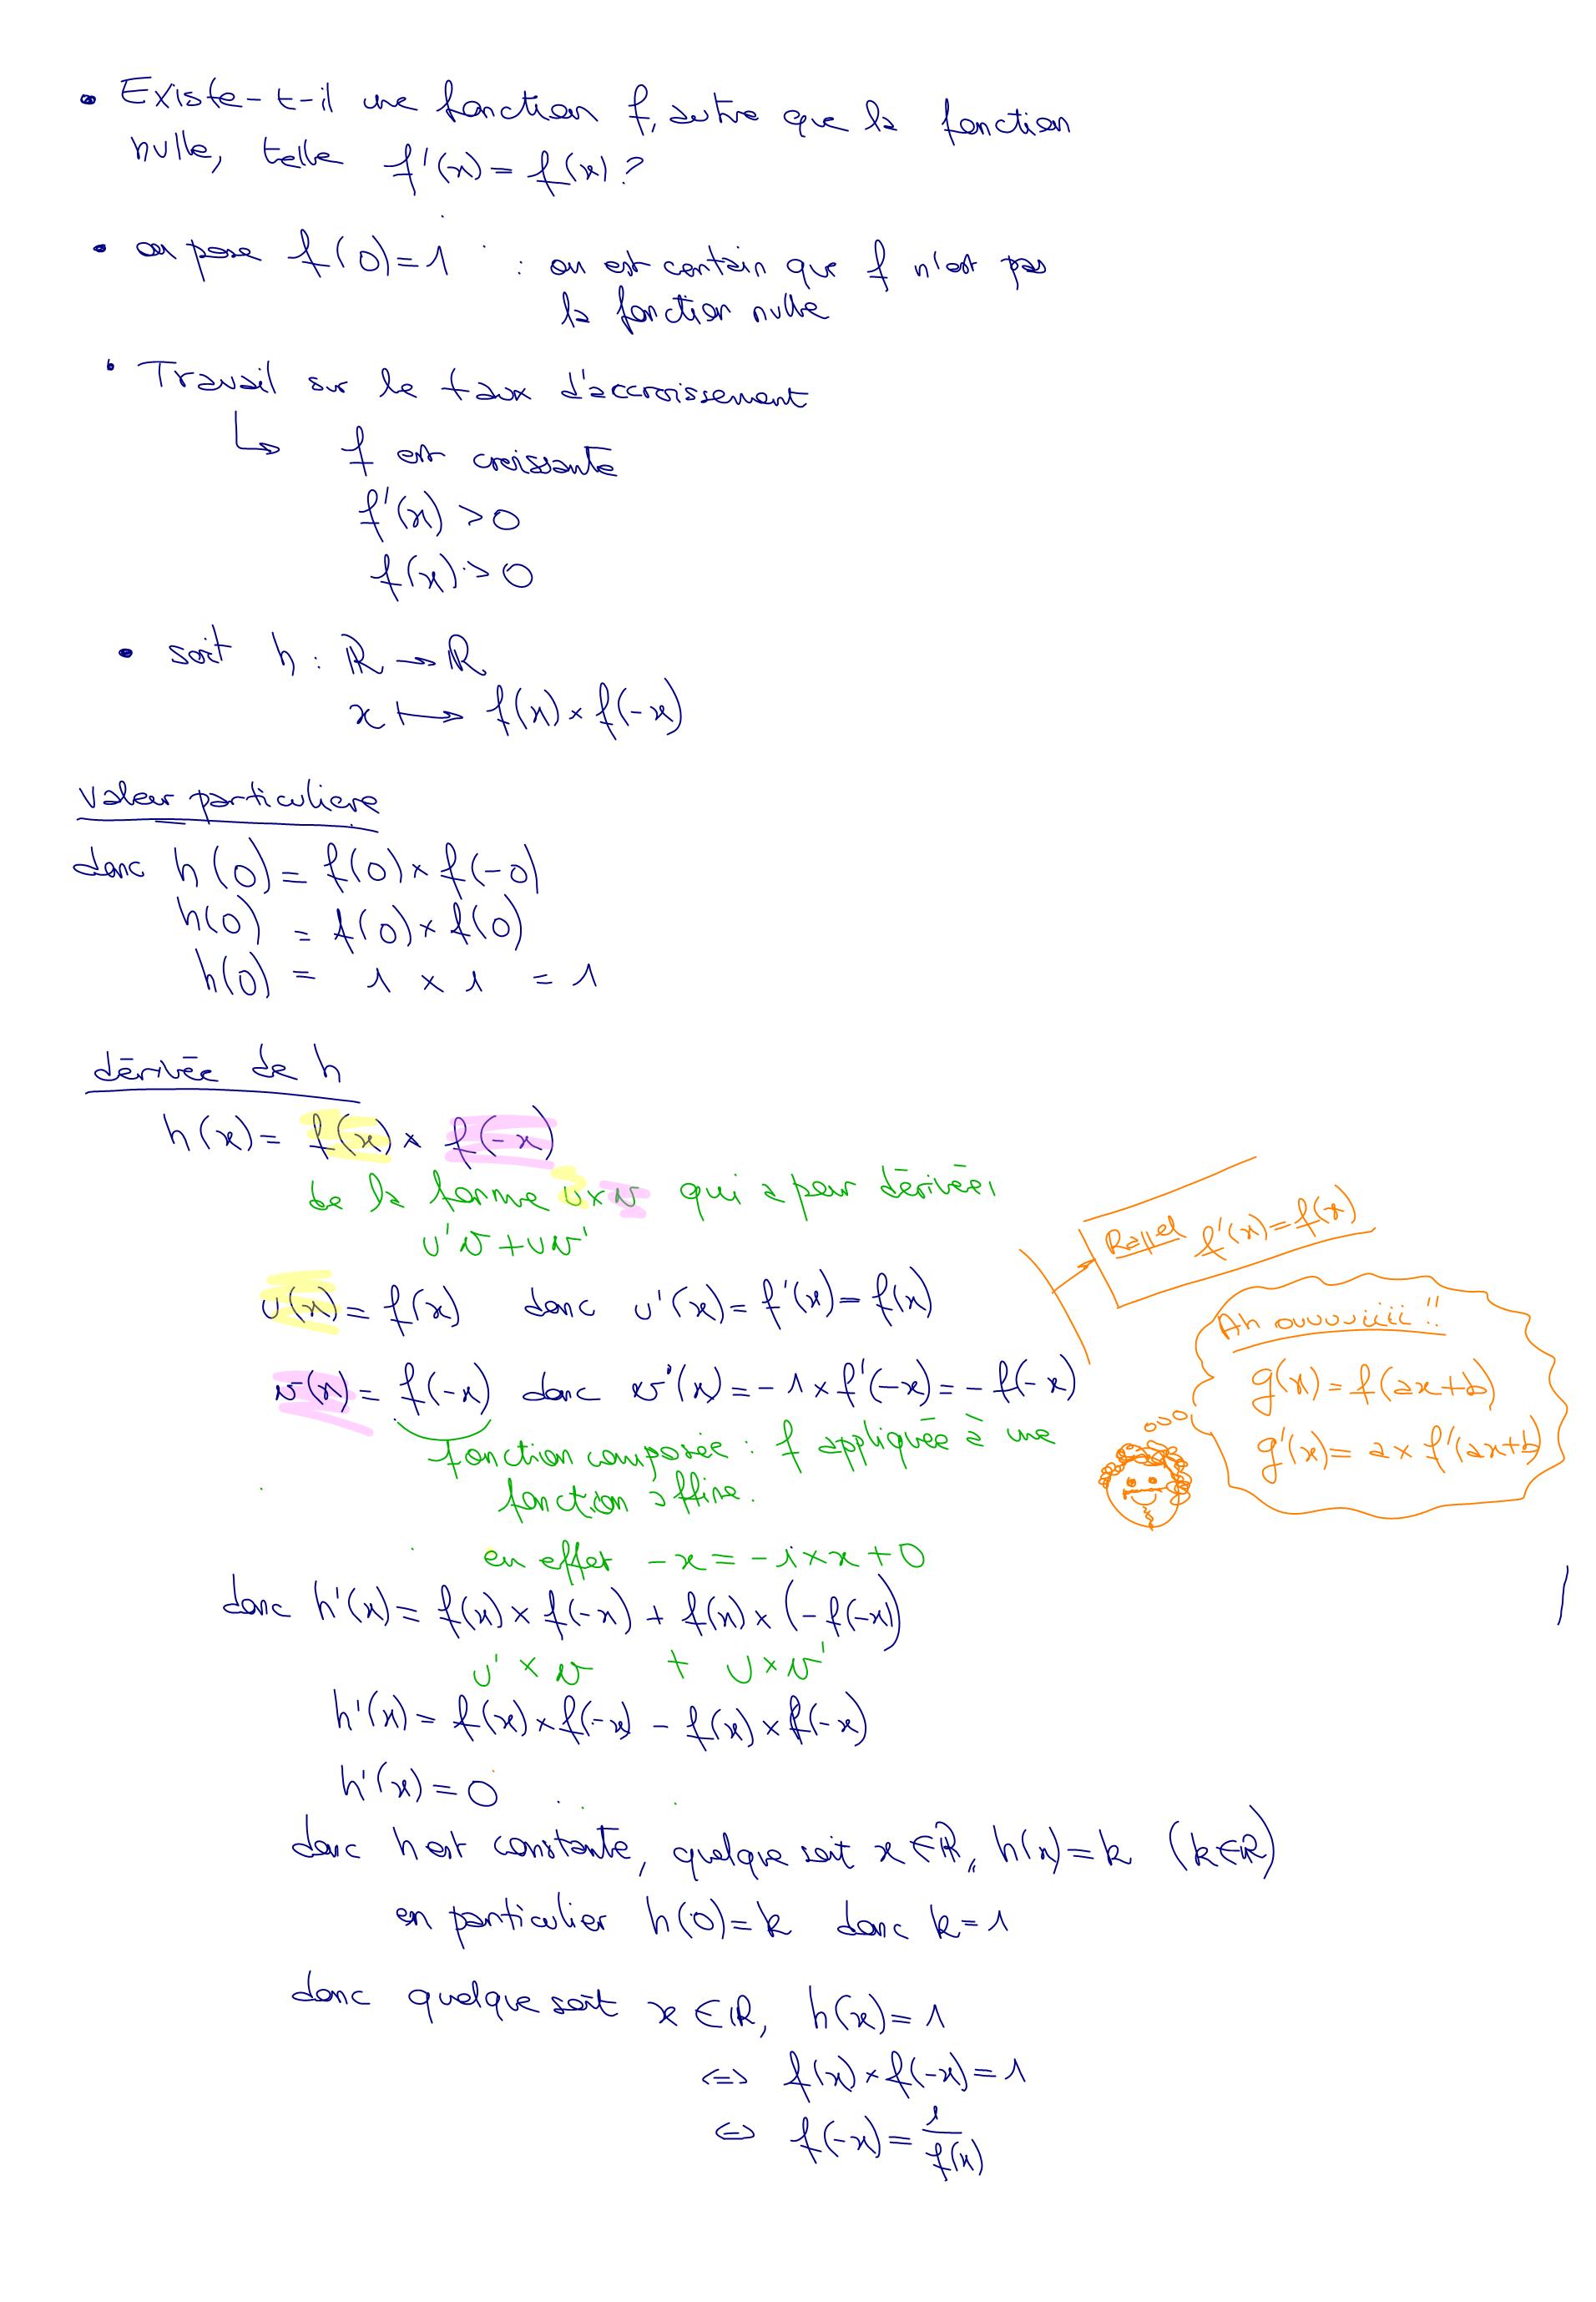 • Existe-t-il une fonction f, autre que la fonction
nulle, telle f'(x) = f(x) ?
• on pose f(0)=1 : on est certain que f n'est pas
la fonction nulle
• Travail sur le taux d'accroissement
↳ f est croissante
f'(x) > 0
f(x) > 0
• soit h : ℝ → ℝ
x ↦ f(x) × f(-x)
valeur particuliere
donc h(0) = f(0) × f(-0)
h(0) = f(0) × f(0)
h(0) = 1 × 1 = 1
dérivée de h
h(x) = f(x) × f(-x)
de la forme u×v qui a pour dérivée,
u'v + uv'
Rappel f'(x) = f(x)
u(x) = f(x) donc u'(x) = f'(x) = f(x)
v(x) = f(-x) donc v'(x) = -1 × f'(-x) = -f(-x)
Ah ouuuuiiii !!
g(x) = f(ax+b)
g'(x) = a × f'(ax+b)
fonction composée : f appliquée à une
fonction affine.
en effet -x = -1×x + 0
donc h'(x) = f(x) × f(-x) + f(x) × (-f(-x))
u' × v + u × v'
h'(x) = f(x) × f(-x) - f(x) × f(-x)
h'(x) = 0
donc h est constante, quelque soit x ∈ ℝ, h(x) = k (k ∈ ℝ)
en particulier h(0) = k donc k = 1
donc quelque soit x ∈ ℝ, h(x) = 1
⇔ f(x) × f(-x) = 1
⇔ f(-x) = 1/f(x)